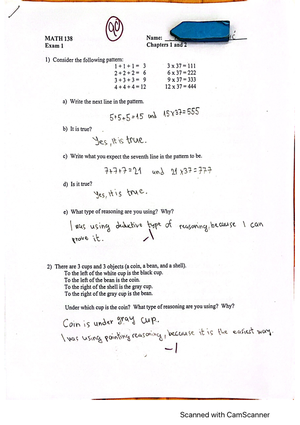 MATH 138
Exam 1
Name:
Chapters 1 and 2
1) Consider the following pattern:
1 + 1 + 1 = 3 3 x 37 = 111
2 + 2 + 2 = 6 6 x 37 = 222
3 + 3 + 3 = 9 9 x 37 = 333
4 + 4 + 4 = 12 12 x 37 = 444
a) Write the next line in the pattern.
5+5+5=15 and 15x37=555
b) It is true?
Yes, it is true.
c) Write what you expect the seventh line in the pattern to be.
7+7+7=21 and 21x37=777
d) Is it true?
Yes, it is true.
e) What type of reasoning are you using? Why?
I was using deductive type of reasoning, because I can
prove it. -1
2) There are 3 cups and 3 objects (a coin, a bean, and a shell).
To the left of the white cup is the black cup.
To the left of the bean is the coin.
To the right of the shell is the gray cup.
To the right of the gray cup is the bean.
Under which cup is the coin? What type of reasoning are you using? Why?
Coin is under gray cup.
I was using pointing reasoning, because it is the easiest way.
-1
Scanned with CamScanner